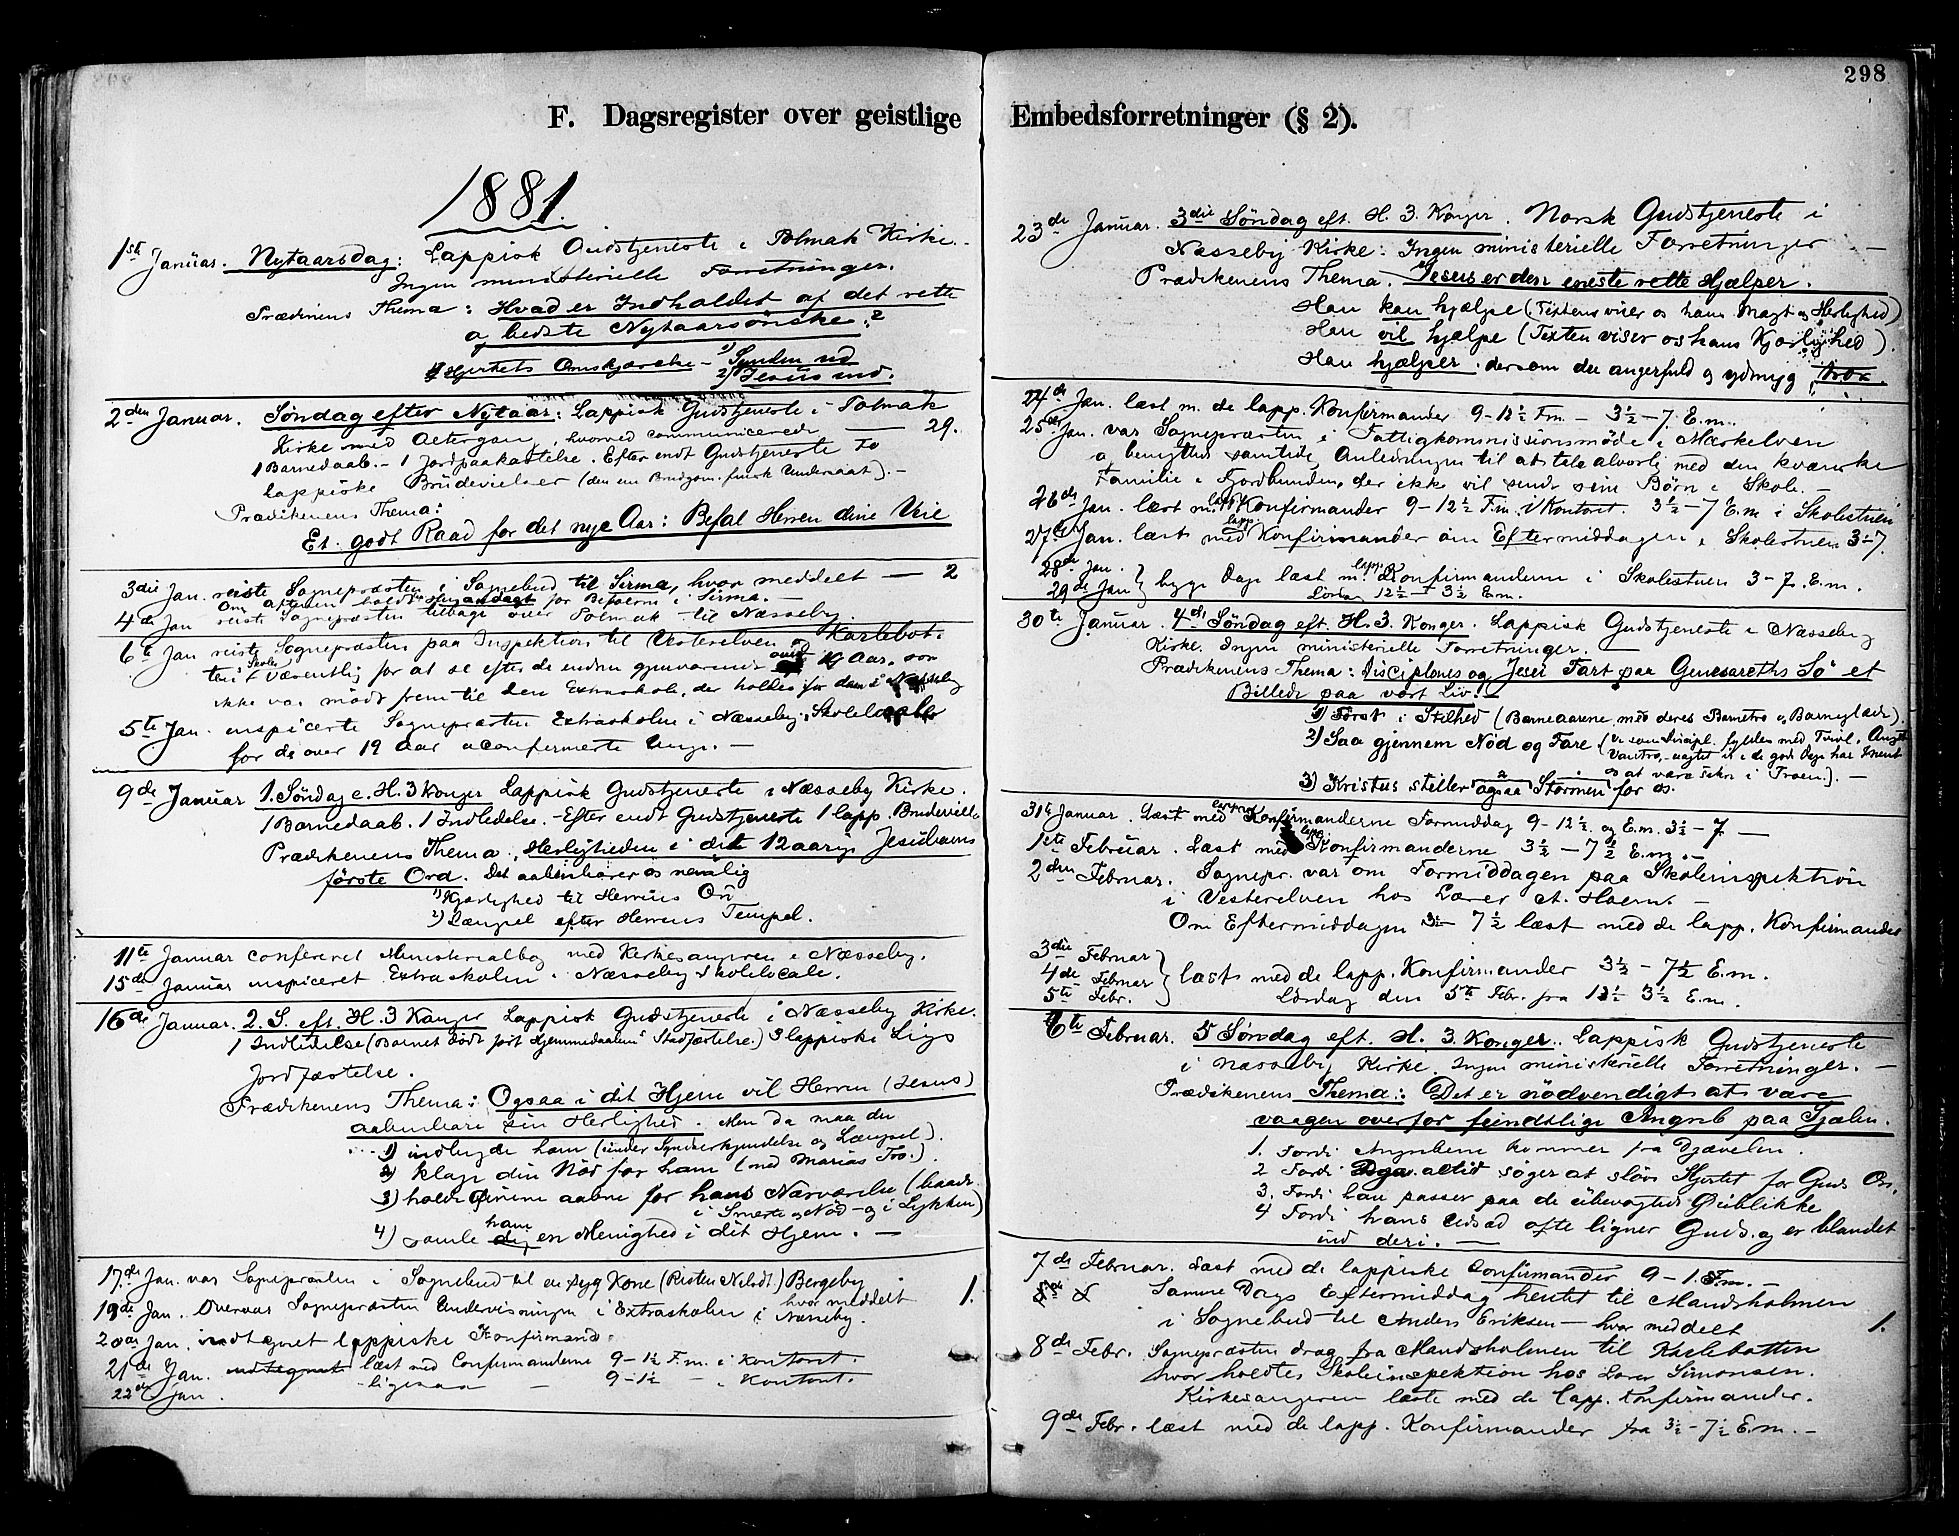 298
F. Dagsregister over geistlige Embedsforretninger (§ 2).
1881.
1ste Januar. Nytaarsdag: Lappisk Gudstjeneste i Polmak Kirke.
Ingen ministerielle Forretninger.
Prædikens Thema: Hvad er Indholdet af det rette
og bedste Nytaarsönske?
Hjertets Omskjærelse - 1) Synden ud
2) Jesus ind.
2den Januar. Söndag efter Nytaar: Lappisk Gudstjeneste i Polmak
Kirke med Altergang, hvorved communicerede — 29.
1 Barnedaab. - 1 Jordpaakastelse. Efter endt Gudstjeneste to
lappiske Brudevielser (den ene Brudgom finsk Undersaat). -
Prædikenens Thema:
Et godt Raad for det nye Aar: Befal Herren dine Veie
3die Jan. reiste Sognepræsten i Sognebud til Sirma, hvor meddelt — 2
Om Aftenen holdt andagt for Beboerne i Sirma. -
4de Jan reiste Sognepræsten tilbage over Polmak til Næsseby.
6te Jan reiste Sognepræsten paa Inspektion til Vesterelven og Karlebot.
ten Skole væsentlig for at se efter de endnu gjenværende over 19 Aar, som
ikke var mödt frem til den Extraskole, der holdes for dem i Næsseby
5te Jan. inspicerte Sognepræsten Extraskolen i Næsseby Skolelocale
for de over 19 Aar uconfirmerte Unge. -
9de Januar 1. Söndag e. H. 3 Konger Lappisk Gudstjeneste i Næsseby Kirke.
1 Barnedaab. 1 Indledelse. - Efter endt Gudstjeneste 1 lapp. Brudevielse
Prædikenens Thema. Herligheden i det 12 aarige Jesubarns
förste Ord. Det aabenbarer os nemlig
1) Kjærlighed til Herrens Ord
2) Længsel efter Herrens Tempel.
11te Januar confereret Ministerialbog med Kirkesangeren i Næsseby.
15de Januar inspiceret Extraskolen i Næsseby Skolelocale.
16de Januar. 2. S. eft. H. 3 Konger Lappisk Gudstjeneste i Næsseby Kirke.
1 Indledelse (Barnet död för Hjemmedaabens Stadfæstelse.) 3 lappiske Ligs
Jordfæstelse.
Prædikenens Thema: Ogsaa i dit Hjem vil Herren (Jesus)
aabenbare sin Herlighed. Men da maa du
1) indbyde ham (under Synderkjendelse og Længsel).
2) klage din Nöd for ham (med Marias Tro.)
3) holde Öinene aabne for hans Nærværelse (baade
i Smerte og Nöd - og i Lykken)
4) samle ham en Menighed i dit Hjem. -
17de Jan. var Sognepræsten i Sognebud til en syg Kone (Risten Nilsdt.) Bergeby
hvor meddelt 1.
19de Jan. Overvar Sognepræsten Undervisningen i Extraskolen i Næsseby.
20de Jan. indtegnet lappiske Konfirmand.
21de Jan. indtegnet læst med Confirmanderne 9-1½ F.m. i Kontoret.
22de Jan. ligesaa - 9-1½ - i Kontoret.
23de Januar. 3die Söndag eft. H. 3. Konger. Norsk Gudstjeneste i
Næsseby Kirke: Ingen ministerielle Forretninger —
Prædikenens Thema. Jesus er den eneste rette Hjælper.
Han kan hjælpe (Texten viser os hans Magt og Herlighed)
Han vil hjælpe (Texten viser os hans Kjærlighed).
Han hjælper, dersom du angerfuld og ydmyg
24de Jan. læst m. de lapp. Konfirmander 9-12½ Fm - 3½-7. E.m.
25de Jan. var Sognepræsten i Fattigkommissionsmöde i Mærkelven
og benyttede samtidig Anledningen til at tale alvorlig med den kvænske
Familie i Fjordbunden, der ikke vil sende sine Börn i Skole. -
26de Jan. læst m. lapp. Konfirmander 9-12½ F.m. i Kontoret. 3½-7 E.m i Skolestuen
27de Jan. læst med lapp. Konfirmander om Eftermiddagen i Skolestuen 3-7.
28de Jan.
29de Jan } begge Dage læst m. lapp. Konfirmanderne i Skolestuen 3-7. E.m.
Lördag 12½ - 3½ E.m.
30te Januar. 4de Söndag eft. H. 3. Konger. Lappisk Gudstjeneste i Næsseby
Kirke. Ingen ministerielle Forretninger. -
Prædikenens Thema: Disciplenes og Jesu Fart paa Genesareths Sö et
Billede paa vort Liv. -
1) Först i Stilhed (Barneaarene med deres Barnetro og Barneglæde).
2) Saa gjennem Nöd og Fare (Vi som Disciple fyldes med Tvivl, Angst
Vantro, - uagtet vi i de gode Dage har ment
os at være sikre i Troen). -
3) Kristus stiller ogsaa Stormen for os.
31te Januar. Læst med lapp. Konfirmanderne Formiddag 9-12½ og E.m. 3½-7 —
1ste Februar. Læst med lapp. Konfirmanderne 3½-7½ E.m. -
2den Februar. Sognepr. var om Formiddagen paa Skoleinspektion
i Vesterelven hos Lærer A. Hoem. -
Om Eftermiddagen 3½-7½ læst med de lapp. Konfirmander
3die Februar
4de Februar } læst med de lapp. Konfirmander 3½-7½ E.m.
5te Febr. Lördag den 5te Febr. fra 12½-3½ E.m.
6te Februar. 5 Söndag eft. H. 3. Konger. Lappisk Gudstjeneste
i Næsseby Kirke. Ingen ministerielle Forretninger. -
Prædikenens Thema: Det er nödvendigt at være
vaagen overfor fiendtlige Angreb paa Sjælen.
1. Fordi Angrebene kommer fra Djævelen.
2 Fordi altid söger at slöve Hjertet for Guds Ord,
3. Fordi han passer paa de ubevogtede Öieblikke
4 Fordi hans Udsæd ofte ligner Guds og er blandet
ind deri. —
7de Februar. Læst med de lappiske Confirmander 9-1. F.m. -
Samme Dags Eftermiddag hentet til Mandsholmen
i Sognebud til Anders Eriksen — hvor meddelt 1.
8de Febr. Sognepræsten drog fra Mandsholmen til Karlebotten
hvor holdtes Skoleinspektion hos Lærer Simonsen.
Kirkesangeren læste med de lapp. Konfirmander.
9de Febr. læst med de lapp. Konfirmander fra 3½-7½ E.m. -